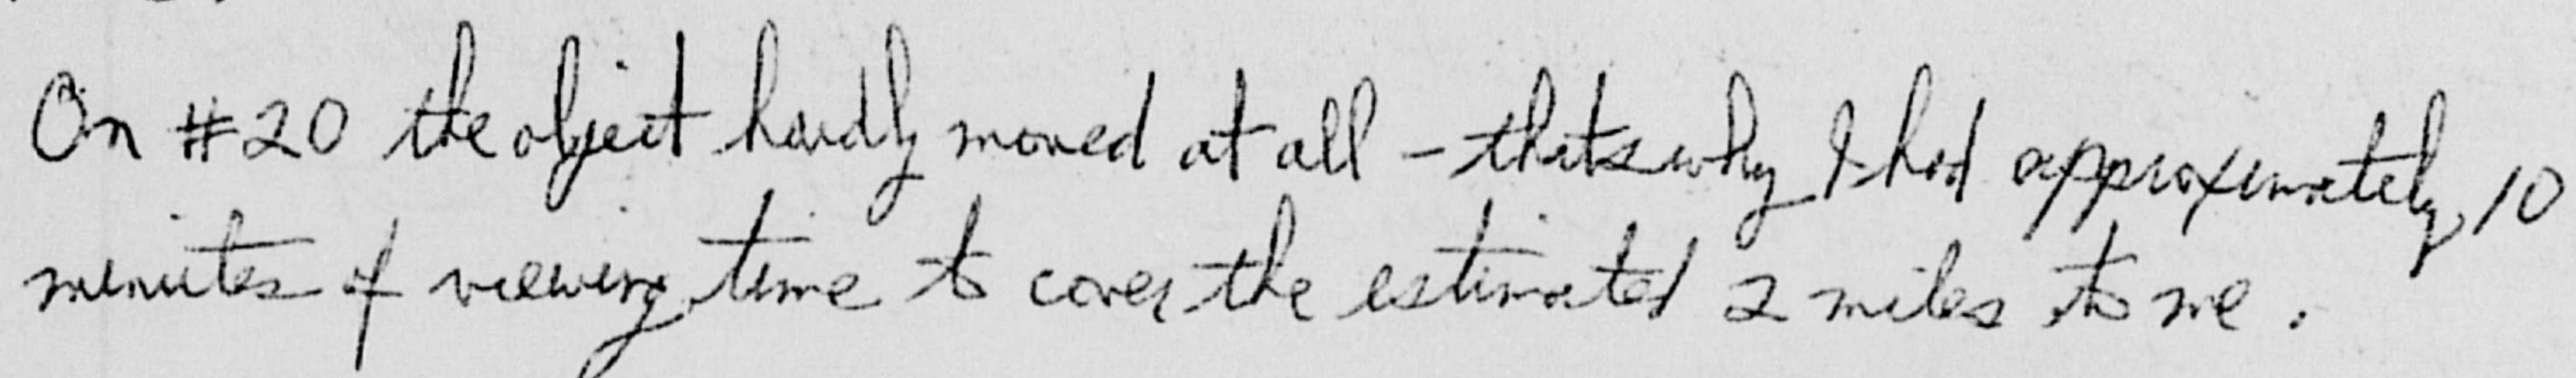 On #20 the object hardly moved at all - thats why I had approximately 10
minutes of viewing time to cover the estimated 2 miles to me.